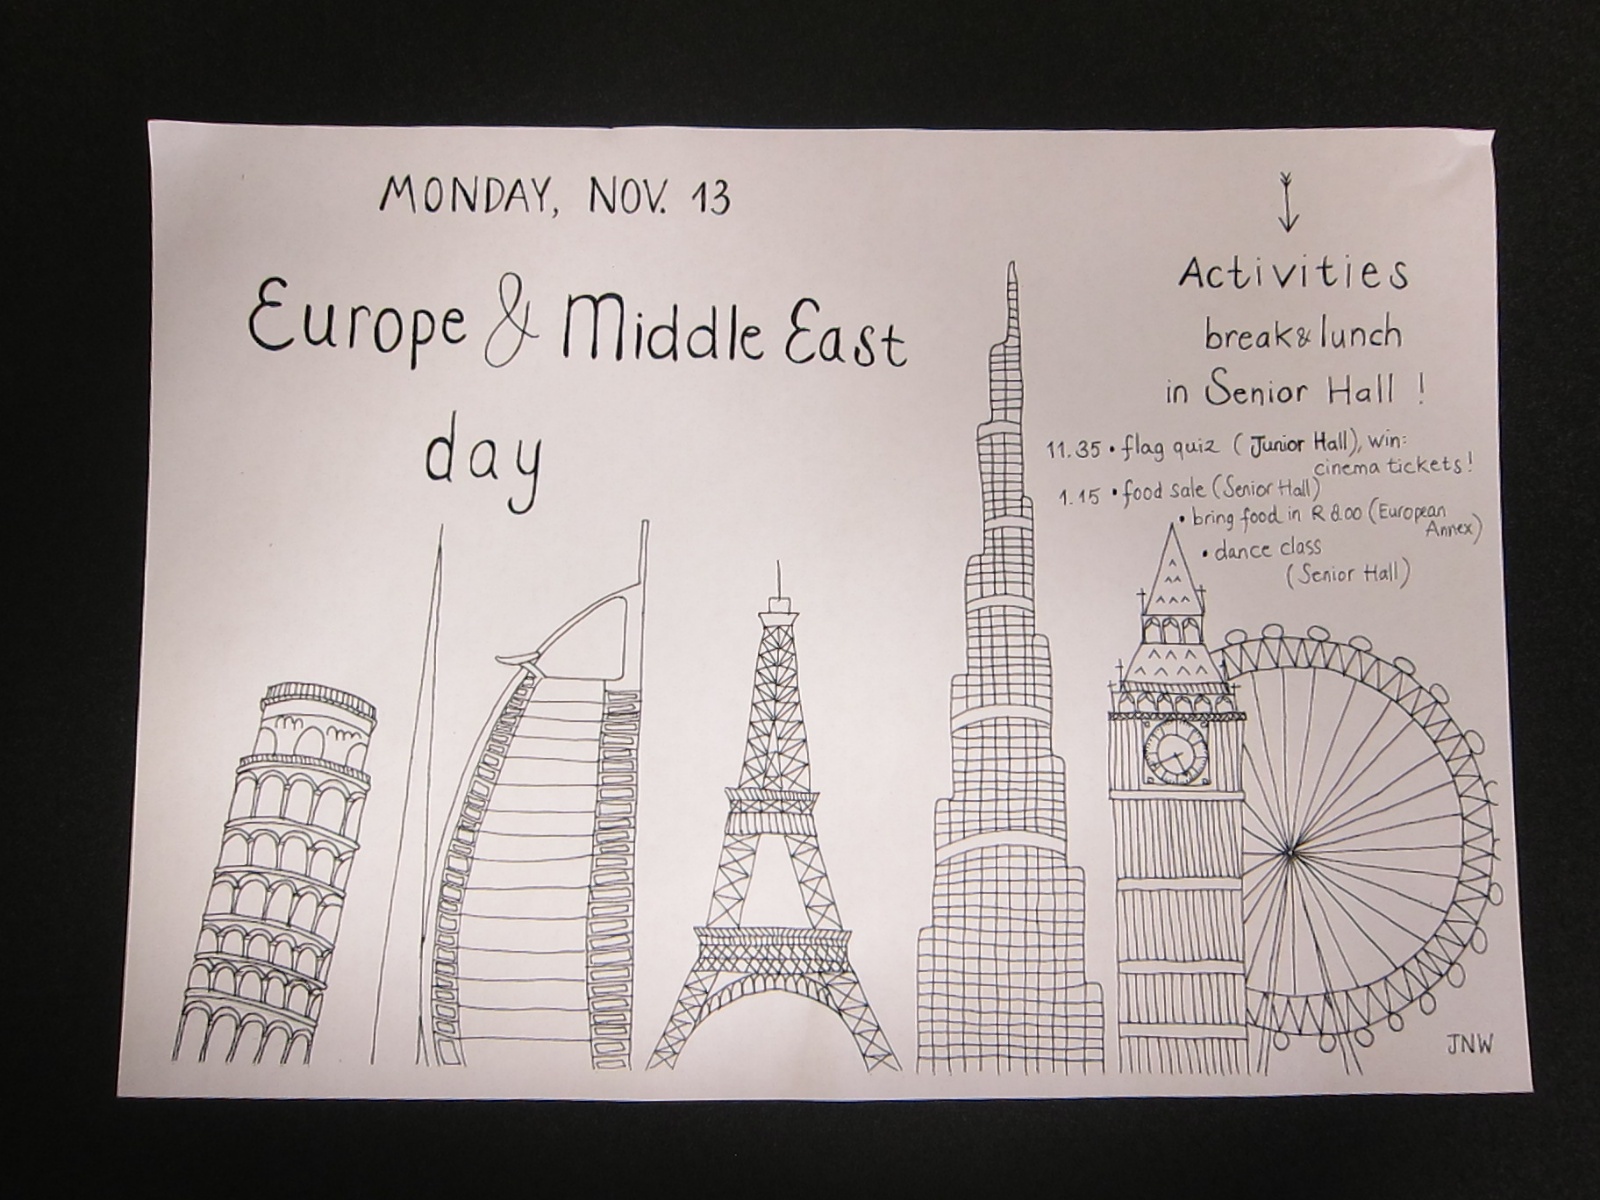 MONDAY, NOV. 13
Europe & Middle East
day
Activities
break & lunch
in Senior Hall !
11.35 • flag quiz ( Junior Hall), win:
cinema tickets!
1.15 • food sale (Senior Hall)
• bring food in R 8.00 (European
Annex)
• dance class
( Senior Hall)
JNW